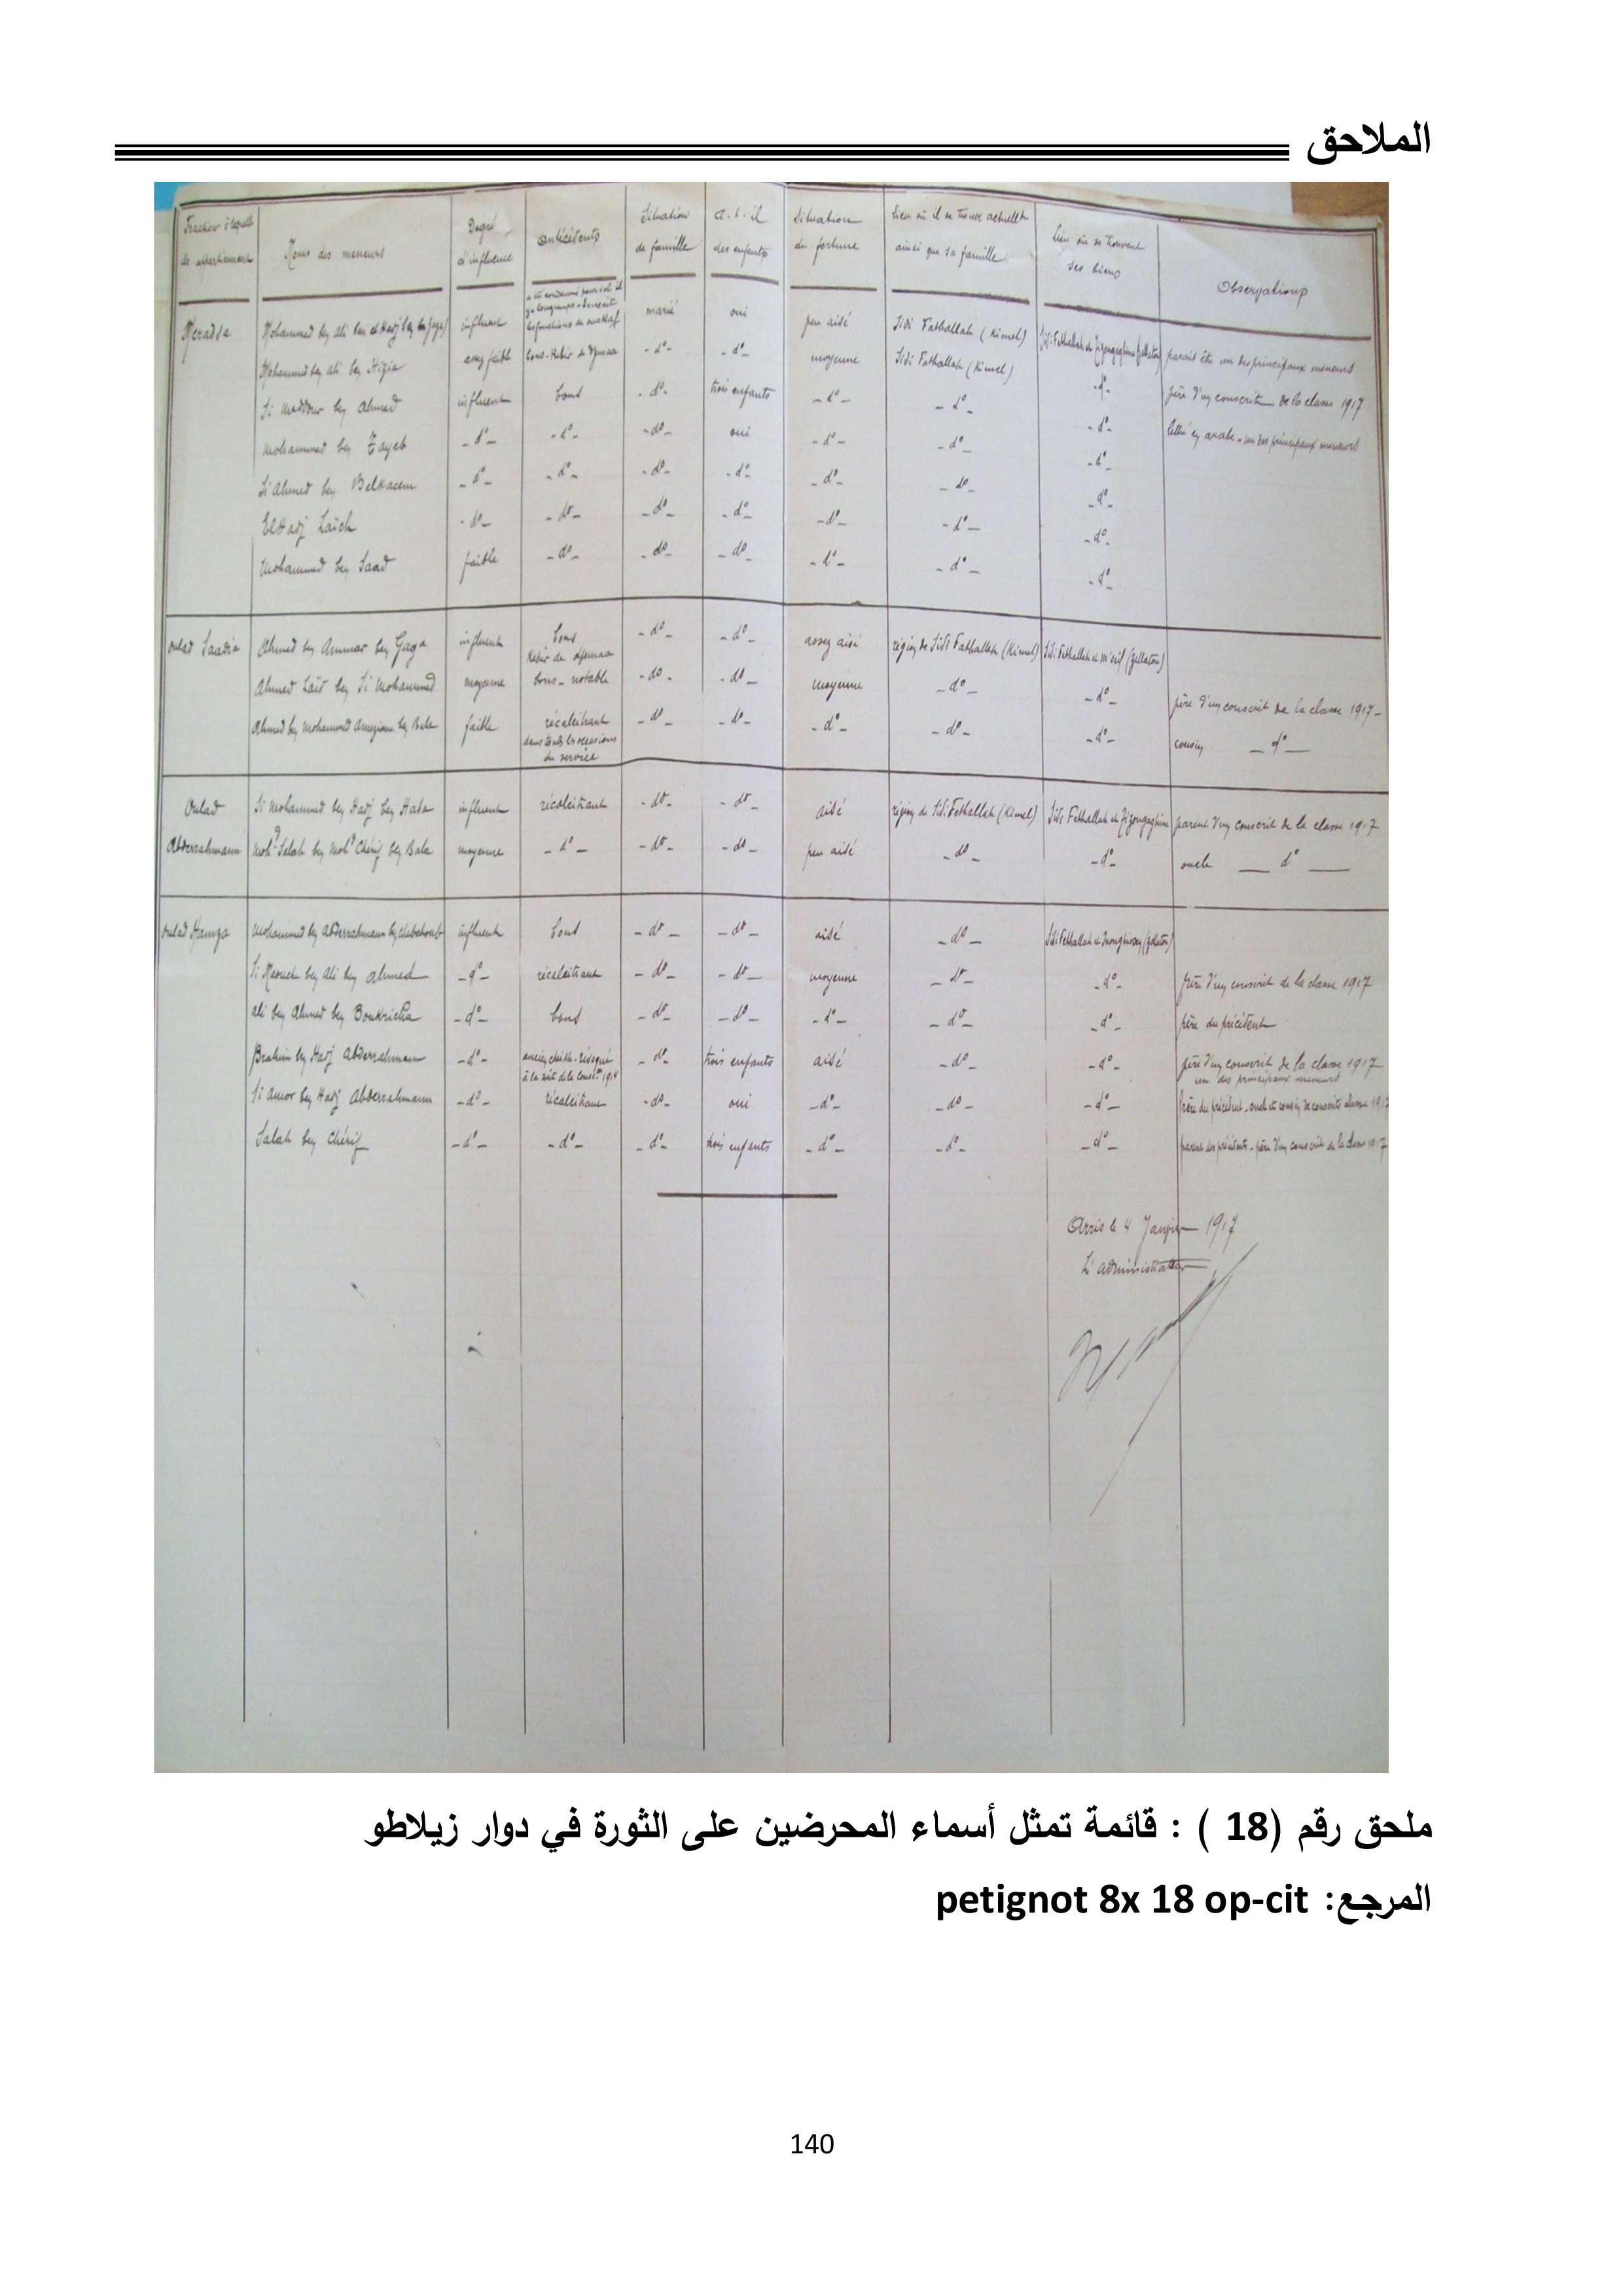 الملاحق
Fraction à laquelle ils appartiennent | Noms des meneurs | Degré d'influence | antécédents | Situation de famille | a-t-il des enfants | Situation de fortune | Lieu où il se trouve actuellt ainsi que sa famille | Lieu où se trouvent ses biens | Observations
Mohammed ben Ali | influent | marié | oui | peu aisé | Sidi Fathallah (Kimel) | parait être un des principaux meneurs
Mohammed ben Ali ben Hizia | assez faible | bons - Kebir de djemaa | -d°- | -d°- | moyenne | Sidi Fathallah (Kimel) | -d°- | père d'un conscrit de la classe 1917
Si Meddour ben Ahmed | influent | bons | -d°- | trois enfants | -d°- | -d°- | -d°- | lettré en arabe - un des principaux meneurs
Mohammed ben Tayeb | -d°- | -d°- | -d°- | oui | -d°- | -d°- | -d°-
Si Ahmed ben Belkacem | -d°- | -d°- | -d°- | -d°- | -d°- | -d°- | -d°-
El Hadj Laïch | -d°- | -d°- | -d°- | -d°- | -d°- | -d°- | -d°-
Mohammed ben Saad | faible | -d°- | -d°- | -d°- | -d°- | -d°- | -d°-
Oulad Saadia | Ahmed ben Ammar ben Gaga | influent | bons Kebir de djemaa | -d°- | -d°- | assez aisé | région de Sidi Fathallah (Kimel) | Sidi Fethallah
Ahmed Laïd ben Si Mohammed | moyenne | bons - notable | -d°- | -d°- | moyenne | -d°- | -d°- | père d'un conscrit de la classe 1917-
Ahmed ben Mohammed Ameziane ben Bala | faible | récalcitrant dans toutes les occasions du service | -d°- | -d°- | -d°- | -d°- | -d°- | cousin -d°-
Oulad Abderrahmann | Si Mohammed ben Hadj ben | influent | récalcitrant | -d°- | -d°- | aisé | région de Sidi Fethallah (Kimel) | Sidi Fethallah et | parent d'un conscrit de la classe 1917
Mohd Salah ben Mohd Chérif ben Bala | moyenne | -d°- | -d°- | -d°- | peu aisé | -d°- | -d°- | oncle -d°-
Oulad Hamza | Mohammed ben Abderrahmann ben | influent | bons | -d°- | -d°- | aisé | -d°- | Sidi Fethallah et
Si ben Ali ben Ahmed | -d°- | récalcitrant | -d°- | -d°- | moyenne | -d°- | -d°- | père d'un conscrit de la classe 1917
Ali ben Ahmed ben Boukricha | -d°- | bons | -d°- | -d°- | -d°- | -d°- | -d°- | frère du précédent
Brahim ben Hadj Abderrahmann | -d°- | ancien cheikh - révoqué à la suite de la 1914 | -d°- | trois enfants | aisé | -d°- | -d°- | père d'un conscrit de la classe 1917 un des principaux meneurs
Si Amor ben Hadj Abderrahmann | -d°- | récalcitrant | -d°- | oui | -d°- | -d°- | -d°- | frère du précédent - oncle et cousin de conscrits classe 1917
Salah ben Chérif | -d°- | -d°- | -d°- | trois enfants | -d°- | -d°- | -d°- | parent des précédents - père d'un conscrit de la classe 1917
Arris le 4 Janvier 1917
L'administrateur
ملحق رقم (18 ) : قائمة تمثل أسماء المحرضين على الثورة في دوار زيلاطو
المرجع: petignot 8x 18 op-cit
140